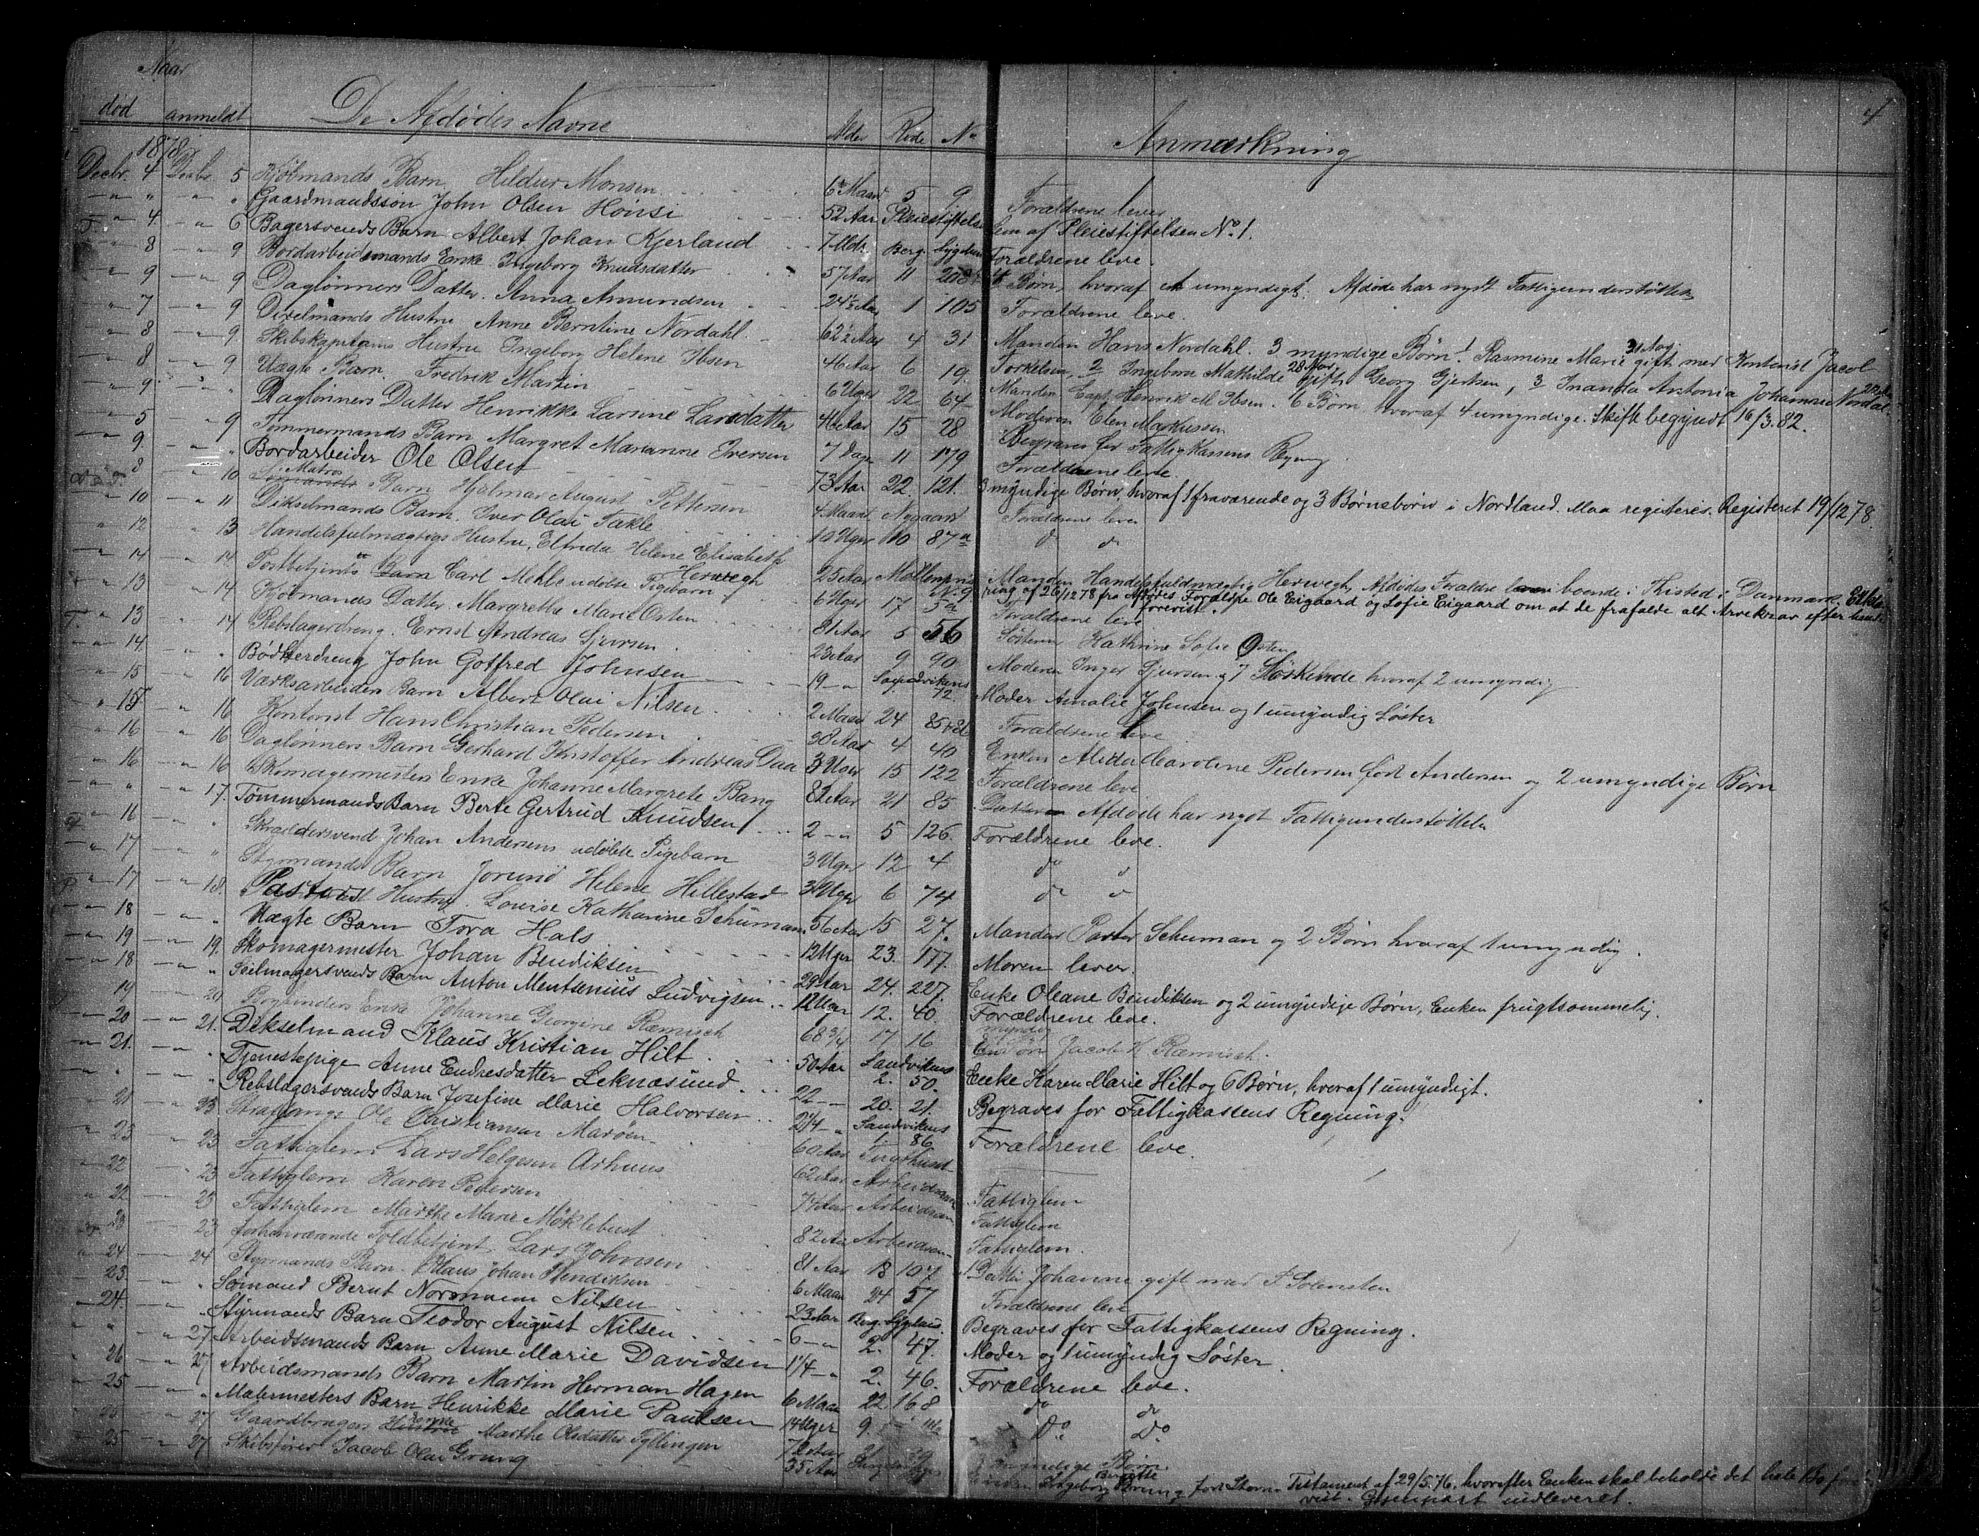 4
Naar
død anmeldt De Afdødes Navne Alder Rode No Anmærkning
1878
Decbr. 4 Decbr. 5 Kjøbmands Barn Hildur Monsen 6 Maan 5 9 Forældrene lever
" " " Gaardmandssøn John Olsen Hønsi 52 Aar Pleiestiftelsen Lem af Pleiestiftelsen No. 1.
4 6 Bagersvends Barn Albert Johan Kjerland 7 Mdr. Berg. Sygehus Forældrene leve.
8 9 Bordarbeidsmands Enke Ingeborg Knudsdatter 57 Aar 11 Børn, hvoraf umyndigt. Afdøde har nydt Fattigunderstøttelse
9 9 Dagløners Datter. Anna Amundsen 24½ Aar 1 105 Forældrene leve.
7 9 Dixelmands Hustru Anne Berntine Nordahl. 62½ Aar 4 31 Manden Hans Nordahl. 3 myndige Børn: 1 Rasmine Marie 31 Aar gift med Kontorist Jacob
Torkelsen, 2 Ingeborg Mathilde 28 Aar gift Georg Gjertsen, 3 Inanda Antonia Johanne Nordal
8 9. Skibskaptains Hustru Ingeborg Helene Ibsen 46 Aar 6 19. Manden Capt. Henrik M. Ibsen. 6 Børn, hvoraf 4 umyndige. Skifte begyndt 16/3.82.
8 9 Uægte Barn. Fredrik Martin 6 Uger 22 64 Moderen Elen Markussen
9 " Dagløners Datter Henrikke Larsine Larsdatter Aar 15 28 Begraves for Fattigkassens Regning.
5 9 Tømmermands Barn Margret Marianne Iversen 7 Dage 11 179 Forældrene leve
9 " Bordarbeider Ole Olsen 73 Aar 22. 121. 3 myndige Børn, hvoraf 1 fraværende og 3 Børnsbørn i Nordland. Maa registeres. Registeret 19/12 78.
8 10 Matros Barn Hjalmar August Pettersen 4 Maan Nygaard Forældrene leve
10 11 Dikselmands Barn. Iver Olai Takle 10 Uger 10 87a do do
12 13 Handelsfulmægtigs Hustru, Elfrida Helene Elisabeth Herwegh 25 Aar Møllenpris No 9 Manden Handelsfuldmægtig Herwegh, Afdødes Forældre boende i Thisted i Danmark. Erklæ-
ring af 26/12 78 fra Afdødes Forældre Ole Eigaard og Sofie Eigaard om at de frafalde alt Arvekrav efter hende
forevist.
14 14 Postbetjents Carl Mehls udøbte Pigebarn 6 Uger 17 5a Forældrene leve
13 14 Kjøbmands Datter Margrethe Marie Osten 81 Aar 5 56 Søsteren Kathrine Sofie Osten
13 14 Rebslagerdreng. Ernst Andreas Sjursen. 23 Aar 9 90 Moderen Inger Sjursen og 7 Søskende hvoraf 2 umyndig
14. " Bødkerdreng John Gotfred Johnsen 19 Sandvikens 72. Moder Amalie Johnsen og 1 umyndig Søster
15 16 Værksarbeiders Barn Albert Olai Nilsen 2 Maan 24 Forældrene leve
15 16 Kontorist Hans Christian Pedersen 38 Aar 4 40 Enken Caroline Pedersen født Andersen og 2 umyndige Børn
16 16 Dagløners Barn Gerhard Kristoffer Andreas Daa 3 Uger 15 122 Forældrene leve
16 16 Skomagermesters Enke Johanne Margrete Bang 82 Aar 21 85 Afdøde har nydt Fattigunderstøttelse
" 17. Tømmermands Barn Berte Gertrud Knudsen 2 5 126. Forældrene leve.
16 " Skræddersvend Johan Andersens udøbte Pigebarn 3 Uger 12 4 do do
17 " Styrmands Barn Jorund Helene Hillestad 3 Uger 6 74 do do
17 18. Pastors Hustru. Louise Katharine Schumann 56 Aar 15 27. Manden Pastor Schuman og 2 Børn hvoraf 1 umyndig.
18 " Uægte Barn Tora Hals 12 Uger 23. 177. Moren lever.
19 19. Skomagermester Johan Bendiksen 29 Aar 24. 227. Enke Oleane Bendiksen og 2 umyndige Børn, Enken frugtsommelig.
18 " Seilmagersvends Barn Anton Mentsenius Ludvigsen 12. 40. Forældrene leve.
19 20 Enke Johanne Georgine Ræmisch 68 3/4 17 16 En myndig Søn Jacob H. Ræmisch.
20 21. Dikselmand Klaus Kristian Hilt. 50 Aar Sandvikens 2. 50. Enke Karen Marie Hilt og 6 Børn, hvoraf 1 umyndigt.
21. " Tjenestepige Anne Endresdatter Leknæsund 22 20. 21. Begraves for Fattigkassens Regning.
" " Rebslagersvends Barn Josefine Marie Halvorsen 2¼ Sandvikens 1. 86 Forældrene leve.
21 23 Straffange Ole Christiansen Marøen 60 Aar Tugthuset
23 23 Fattiglem Lars Helgesen Arhuus 62 Aar Arbeidsan Fattiglem
22 23 Fattiglem Karen Pedersen 74 Aar Arbeidsan Fattiglem
22 23 Fattiglem Marthe Marie Møklebust 82 Aar Arbeidsan Fattiglem.
23 23 Forhenværende Toldbetjent, Lars Johnsen 81 Aar 18 107 1 Datter Johanne gift med
24 24 Styrmands Barn. Klaus Johan Hendriksen 6 Maan 24 57 Forældrene leve
23. " Sømand Bernt Normann Nilsen 23 Aar Berg. Sygehus. Begraves for Fattigkassens Regning.
24. " Styrmands Barn Teodor August Nilsen 6 2. 47. Moder og 1 umyndig Søster.
" 27. Arbeidsmands Barn Anne Marie Davidsen 1¼ 2. 46. Forældrene leve.
26 27 Arbeidsmands Barn Martin Herman Hagen 6 Maan 22 168 do do
25 " Malermesters Barn Henrikke Marie Paulsen 14 Uger 9. Do. Do.
27 Gaardbruger Marthe Olsdatter Fyllingen 72 Aar myndige Børn.
25 27 Skibsfører Jacob Olai Grung 35 Aar Enken Ingeborg Birgitte Grung født Storm. Testament af 29/5.76. hvorefter Enken skal beholde det hele Bo fore-
vist. Gjenpart udleveret.